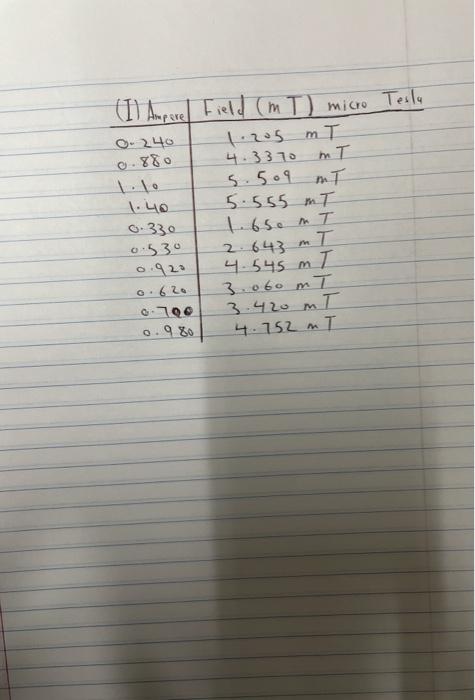 (I) Ampere Field (mT) micro Tesla
0.240 1.205 mT
0.880 4.3370 mT
1.10 5.509 mT
1.40 5.555 mT
0.330 1.650 mT
0.530 2.643 mT
0.920 4.545 mT
0.620 3.060 mT
0.700 3.420 mT
0.980 4.752 mT